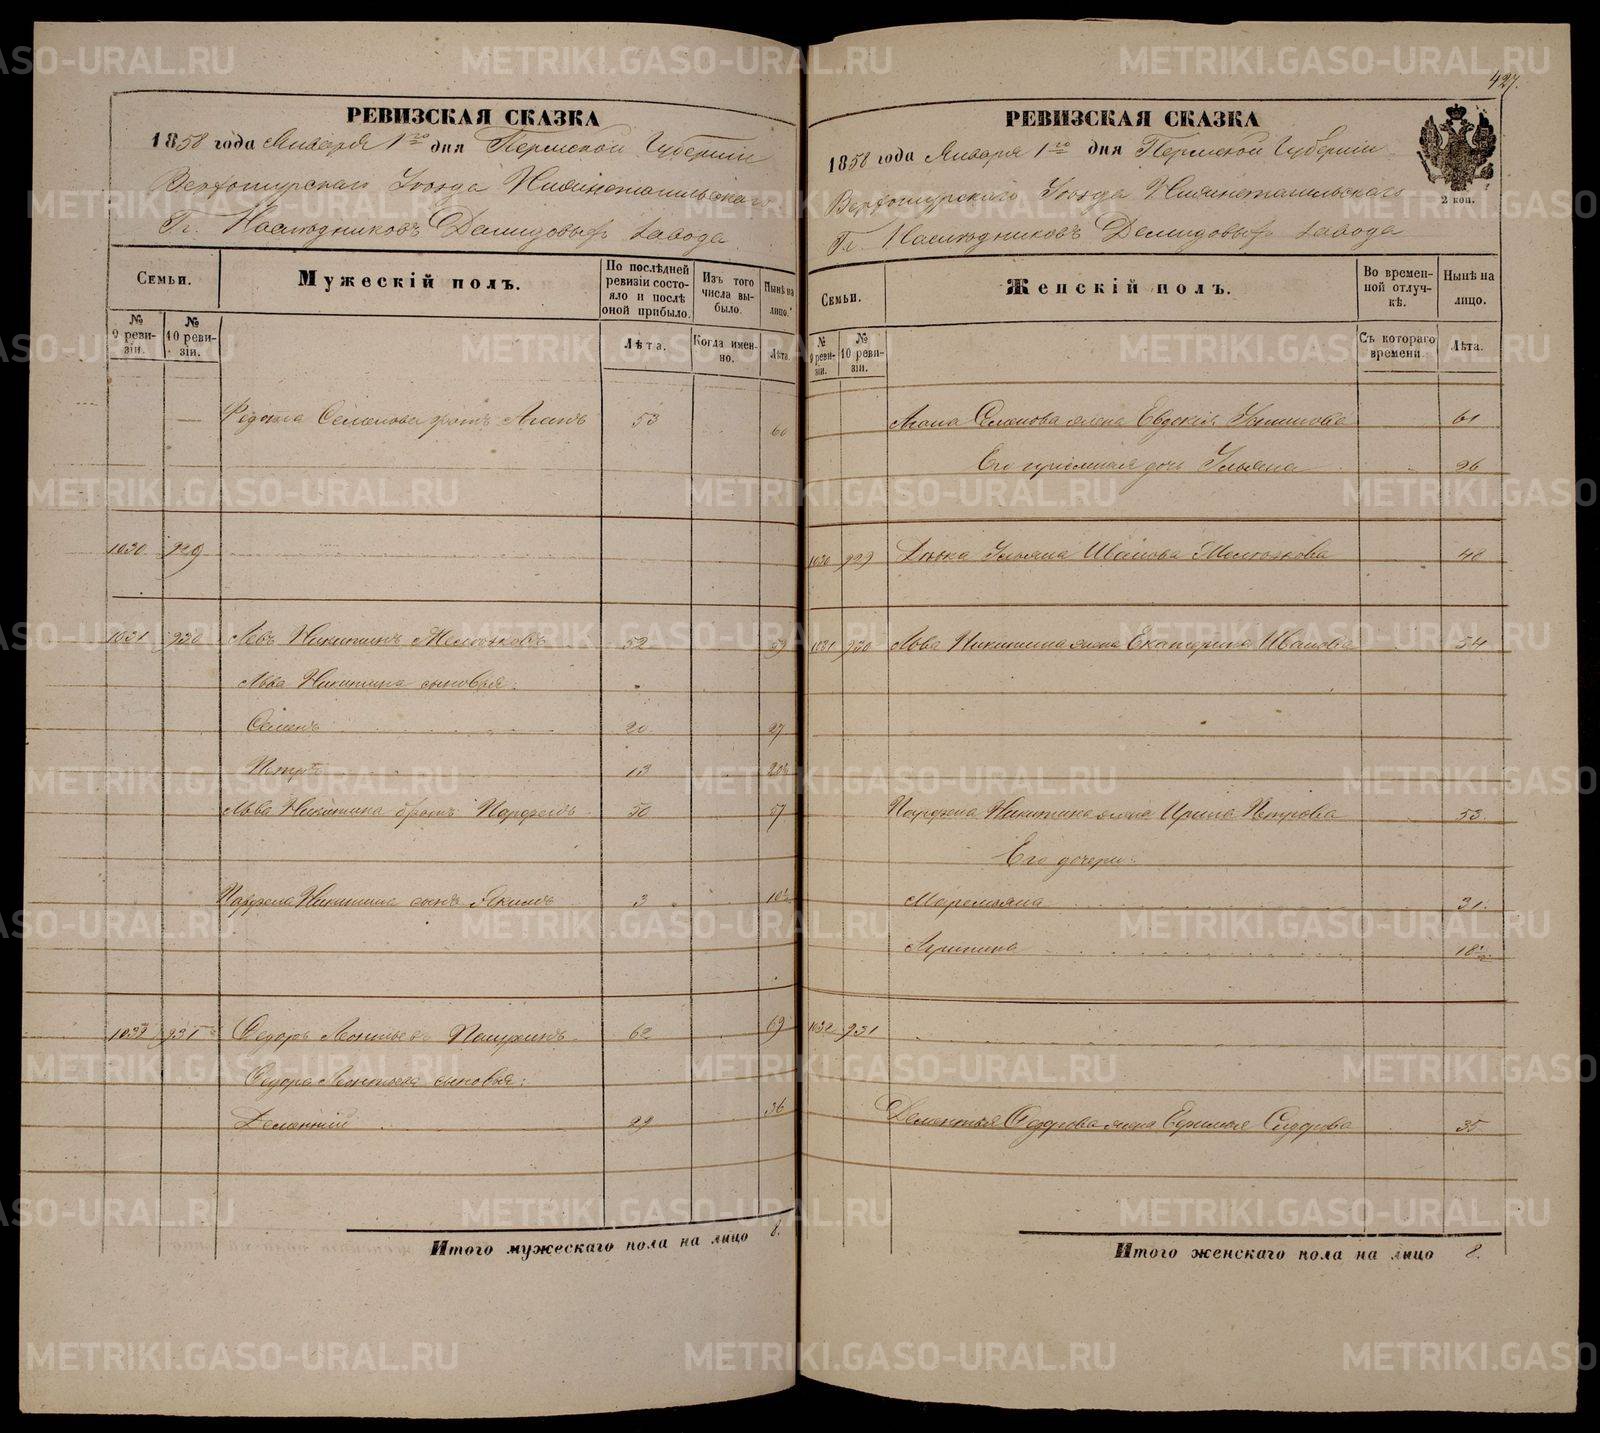 РЕВИЗСКАЯ СКАЗКА
1858 года Января 1го дня Пермской Губернiи
Верхотурскаго Уѣзда Нижнетагильскаго
Гг. Наслѣдниковъ Демидовыхъ завода
Семьи.
Мужескій полъ.
По послѣдней ревизіи состояло и послѣ оной прибыло.
Изъ того числа выбыло.
Нынѣ на лицо.
№ 9 ревизіи.
№ 10 ревизіи.
Лѣта.
Когда именно.
Лѣта.
Семенова братъ 53 60
1030 929
1031 930 Левъ Никитинъ 52 59
Льва Никитина сыновья:
Семенъ 20 27
Петръ 13 20½
Льва Никитина братъ Парфенъ 50 57
Парфена Никитина сынъ Якимъ 3 10½
1032 931 Федоръ Леонтьевъ 62 69
Федора Леонтьева сыновья:
Дементій 29 36
Итого мужескаго пола на лицо 8.
427.
РЕВИЗСКАЯ СКАЗКА
1858 года Января 1го дня Пермской Губернiи
Верхотурскаго Уѣзда Нижнетагильскаго
Гг. Наслѣдниковъ Демидовыхъ завода
2 коп.
Семьи.
Женскій полъ.
Во временной отлучкѣ.
Нынѣ на лицо.
№ 9 ревизіи.
№ 10 ревизіи.
Съ котораго времени
Лѣта.
Семенова жена 61
Его приемная дочь Ульяна 26
1030 929 Дѣвка Ульяна Иванова 40
1031 930 Льва Никитина жена Екатерина Иванова 54
Парфена Никитина жена Ирина Петрова 53
Его дочери:
Маремьяна 31
Агрипина 18½
1032 931
Дементья Федорова жена Сидорова 35
Итого женскаго пола на лицо 8.
METRIKI.GASO-URAL.RU